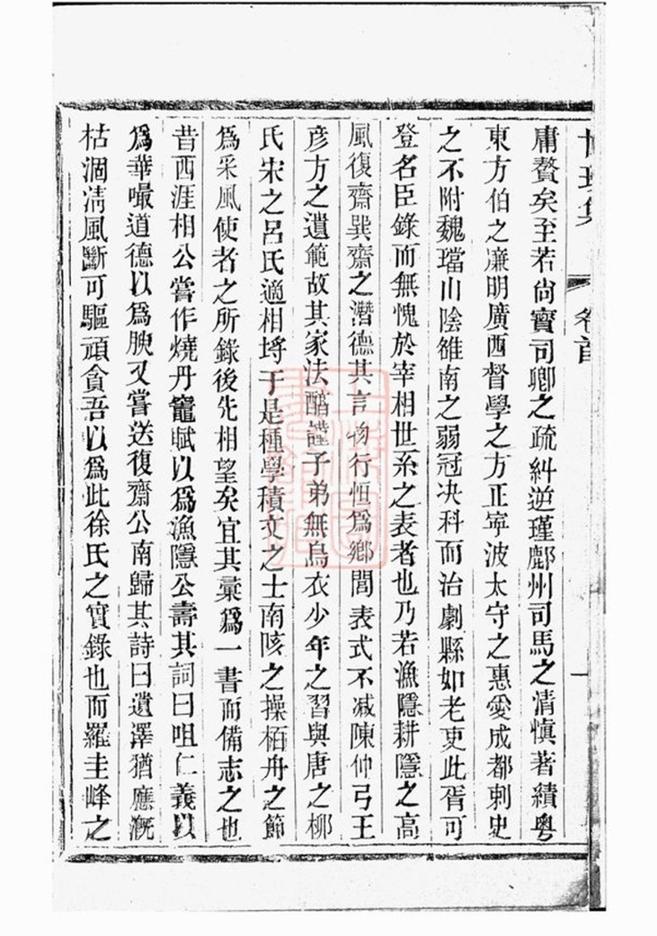 集
卷首
一
庸贅矣至若尚寶司卿之疏糾逆瑾鄜州司馬之清愼著績粤
東方伯之廉明廣西督學之方正寧波太守之惠愛成都刺史
之不附魏璫山陰雒南之弱冠决科而治劇縣如老吏此胥可
登名臣錄而無愧於宰相世系之表者也乃若漁隱耕隱之高
風復齋巽齋之潛德其言物行恒爲鄉閭表式不减陳仲弓王
彦方之遺範故其家法醕謹子弟無烏衣少年之習與唐之柳
氏宋之呂氏適相埒于是種學積文之士南陔之操栢舟之節
爲采風使者之所錄後先相望矣宜其彙爲一書而備志之也
昔西涯相公嘗作燒丹竈賦以爲漁隱公壽其詞曰咀仁義以
爲華嘬道德以爲腴又嘗送復齋公南歸其詩曰遺澤猶應漑
枯涸淸風斷可驅頑貪吾以爲此徐氏之實錄也而羅圭峰之